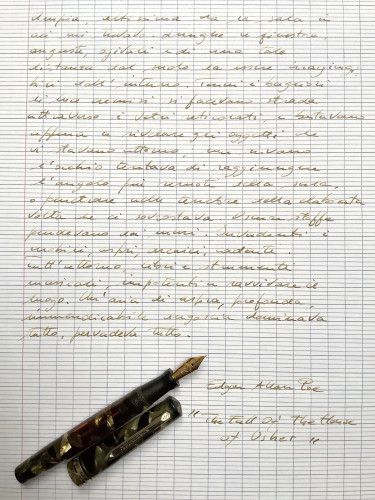 ampia, altissima la sala in
cui mi trovavo. lunghe le finestre,
anguste, ogivali e di una tale
distanza dal suolo da essere irraggiungi
bili dall'interno. Tenui i bagliori
di luce cremisi si facevano strada
attraverso i vetri reticolati, e bastavano
appena a rivelare gli oggetti che
vi stavano attorno, ma invano
l'occhio tentava di raggiungere
l'angolo più remoto della sala,
o penetrare nelle tenebre della
volta che ci sovrastava. stoffe
pendevano dai muri. i
mobili, aspri, cadente.
Tutt'attorno, libri e strumenti
musicali, impotenti a ravvivare il
luogo. Un'aria di aspra, profonda,
angoscia dominava
tutto, pervadeva tutto.
Edgar Allan Poe
"The Fall of The House
of Usher"